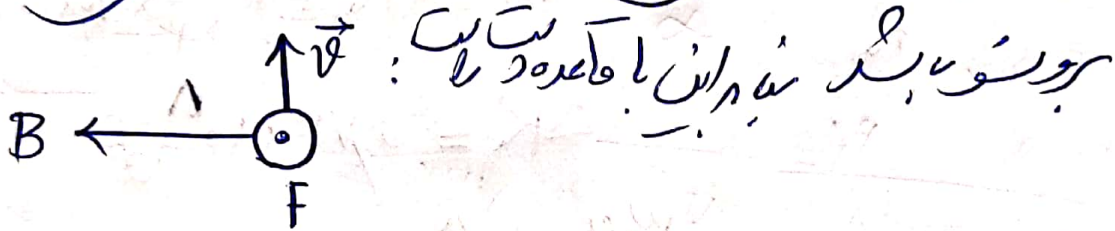 برونسو باشد بنابراین با قاعده دست راست :
v
B
F